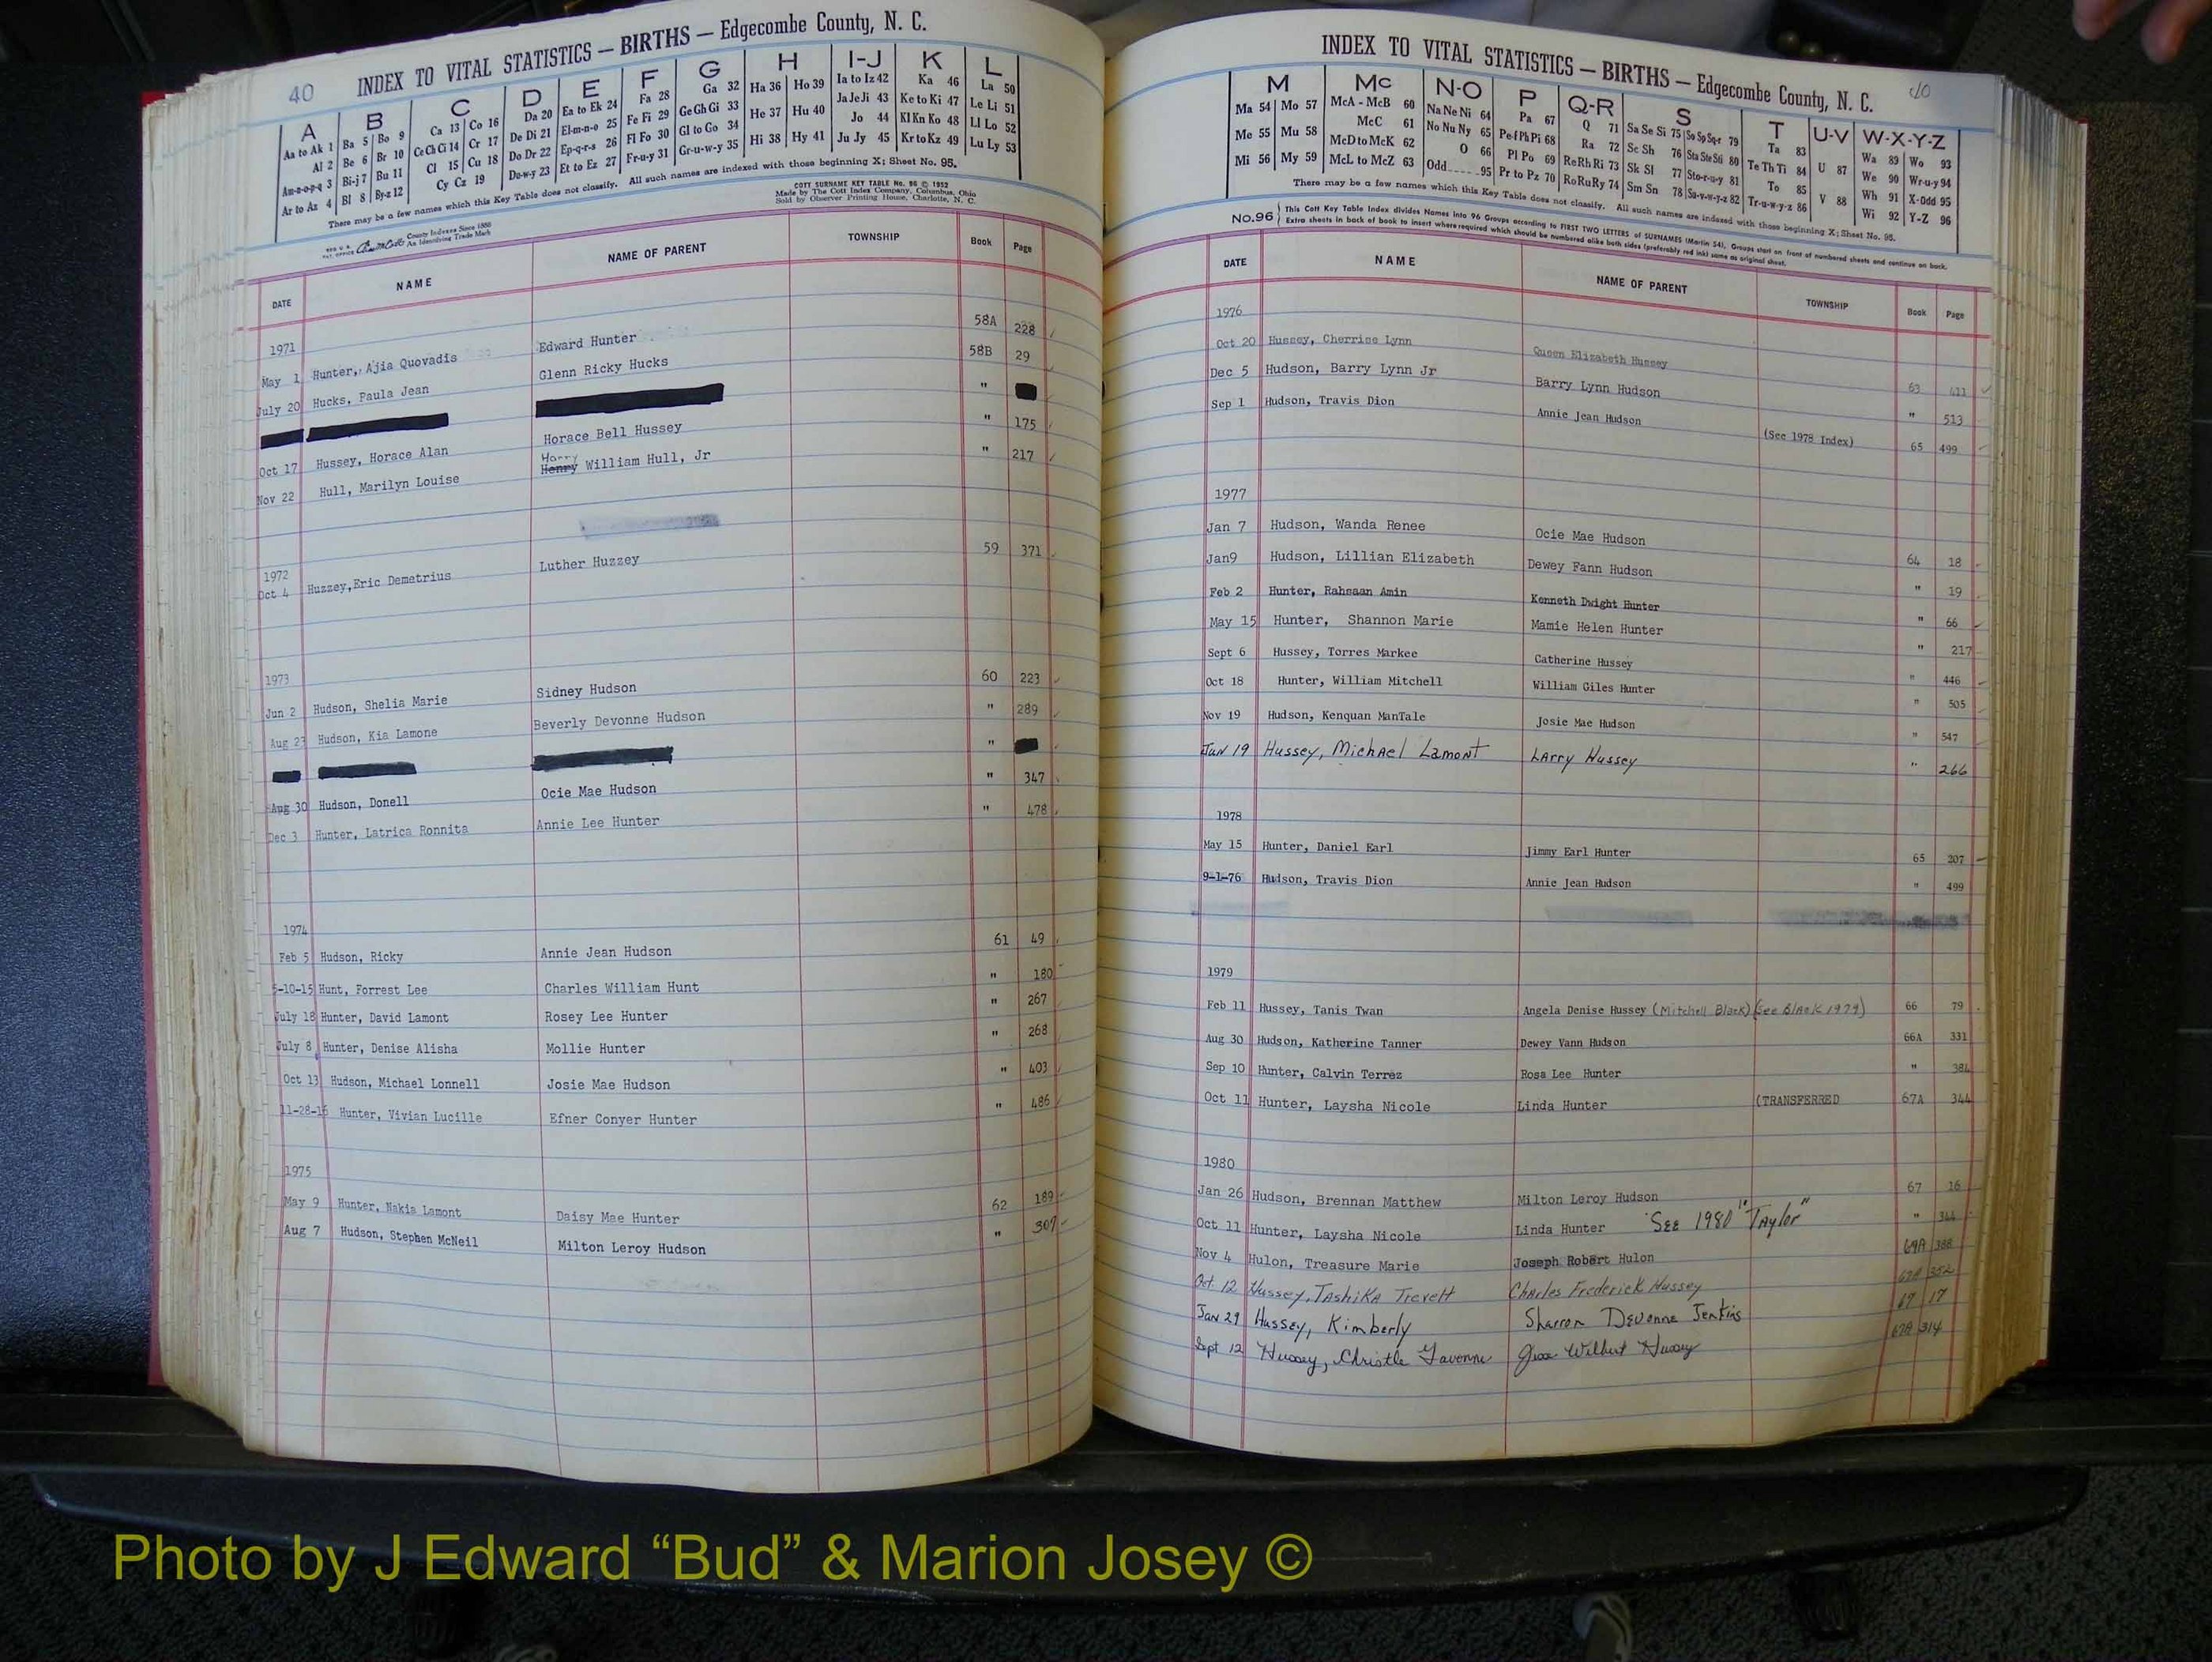 40 INDEX TO VITAL STATISTICS — BIRTHS — Edgecombe County, N. C.
A B C D E F G H I-J K L
Aa to Ak 1 Ba 5 Bo 9 Ca 13 Co 16 Da 20 Ea to Ek 24 Fa 28 Ga 32 Ha 36 Ho 39 Ia to Iz 42 Ka 46 La 50
Al 2 Be 6 Br 10 Ce Ch Ci 14 Cr 17 De Di 21 El-m-n-o 25 Fe Fi 29 Ge Gh Gi 33 He 37 Hu 40 Ja Je Ji 43 Ke to Ki 47 Le Li 51
Am-n-o-p-q 3 Bi-j 7 Bu 11 Cl 15 Cu 18 Do Dr 22 Ep-q-r-s 26 Fl Fo 30 Gl to Go 34 Hi 38 Hy 41 Jo 44 Kl Kn Ko 48 Ll Lo 52
Ar to Az 4 Bl 8 By-z 12 Cy Cz 19 Du-w-y 23 Et to Ez 27 Fr-u-y 31 Gr-u-w-y 35 Ju Jy 45 Kr to Kz 49 Lu Ly 53
There may be a few names which this Key Table does not classify. All such names are indexed with those beginning X; Sheet No. 95.
COTT SURNAME KEY TABLE No. 96 © 1952
Made by The Cott Index Company, Columbus, Ohio
Sold by Observer Printing House, Charlotte, N. C.
County Indexes Since 1888
An Identifying Trade Mark
DATE NAME NAME OF PARENT TOWNSHIP Book Page
1971
May 1 Hunter, Ajia Quovadis Edward Hunter 58A 228
July 20 Hucks, Paula Jean Glenn Ricky Hucks 58B 29
"
Oct 17 Hussey, Horace Alan Horace Bell Hussey " 175
Harry
Nov 22 Hull, Marilyn Louise Henry William Hull, Jr " 217
1972
Oct 4 Huzzey, Eric Demetrius Luther Huzzey 59 371
1973
Jun 2 Hudson, Shelia Marie Sidney Hudson 60 223
Aug 23 Hudson, Kia Lamone Beverly Devonne Hudson " 289
"
Aug 30 Hudson, Donell Ocie Mae Hudson " 347
Dec 3 Hunter, Latrica Ronnita Annie Lee Hunter " 478
1974
Feb 5 Hudson, Ricky Annie Jean Hudson 61 49
5-10-15 Hunt, Forrest Lee Charles William Hunt " 180
July 18 Hunter, David Lamont Rosey Lee Hunter " 267
July 8 Hunter, Denise Alisha Mollie Hunter " 268
Oct 13 Hudson, Michael Lonnell Josie Mae Hudson " 403
11-28-16 Hunter, Vivian Lucille Efner Conyer Hunter " 486
1975
May 9 Hunter, Nakia Lamont Daisy Mae Hunter 62 189
Aug 7 Hudson, Stephen McNeil Milton Leroy Hudson " 307
INDEX TO VITAL STATISTICS — BIRTHS — Edgecombe County, N. C. 40
M Mc N-O P Q-R S T U-V W-X-Y-Z
Ma 54 Mo 57 McA - McB 60 Na Ne Ni 64 Pa 67 Q 71 Sa Se Si 75 So Sp Sq-r 79 Ta 83 U 87 Wa 89 Wo 93
Me 55 Mu 58 McC 61 No Nu Ny 65 Pe Pf Ph Pi 68 Ra 72 Sc Sh 76 Sta Ste Sti 80 Te Th Ti 84 V 88 We 90 Wr-u-y 94
Mi 56 My 59 McD to McK 62 O 66 Pl Po 69 Re Rh Ri 73 Sk Sl 77 Sto-r-u-y 81 To 85 Wh 91 X-Odd 95
McL to McZ 63 Odd 95 Pr to Pz 70 Ro Ru Ry 74 Sm Sn 78 Su-v-w-y-z 82 Tr-u-w-y-z 86 Wi 92 Y-Z 96
There may be a few names which this Key Table does not classify. All such names are indexed with those beginning X; Sheet No. 95.
No. 96 This Cott Key Table Index divides Names into 96 Groups according to FIRST TWO LETTERS of SURNAMES (Martin 54). Groups start on front of numbered sheets and continue on back.
Extra sheets in back of book to insert where required which should be numbered alike both sides (preferably red ink) same as original sheet.
DATE NAME NAME OF PARENT TOWNSHIP Book Page
1976
Oct 20 Hussey, Cherrise Lynn Queen Elizabeth Hussey 63 411
Dec 5 Hudson, Barry Lynn Jr Barry Lynn Hudson " 513
Sep 1 Hudson, Travis Dion Annie Jean Hudson (See 1978 Index) 65 499
1977
Jan 7 Hudson, Wanda Renee Ocie Mae Hudson 64 18
Jan9 Hudson, Lillian Elizabeth Dewey Fann Hudson " 19
Feb 2 Hunter, Rahsaan Amin Kenneth Dwight Hunter " 66
May 15 Hunter, Shannon Marie Mamie Helen Hunter " 217
Sept 6 Hussey, Torres Markee Catherine Hussey " 446
Oct 18 Hunter, William Mitchell William Giles Hunter " 505
Nov 19 Hudson, Kenquan ManTale Josie Mae Hudson " 547
Jun 19 Hussey, Michael Lamont Larry Hussey " 266
1978
May 15 Hunter, Daniel Earl Jimmy Earl Hunter 65 207
9-1-76 Hudson, Travis Dion Annie Jean Hudson " 499
1979
Feb 11 Hussey, Tanis Twan Angela Denise Hussey (Mitchell Black) (See Black 1979) 66 79
Aug 30 Hudson, Katherine Tanner Dewey Vann Hudson 66A 331
Sep 10 Hunter, Calvin Terrez Rosa Lee Hunter " 384
Oct 11 Hunter, Laysha Nicole Linda Hunter (TRANSFERRED 67A 344
1980
Jan 26 Hudson, Brennan Matthew Milton Leroy Hudson 67 16
Oct 11 Hunter, Laysha Nicole Linda Hunter See 1980 "Taylor" " 344
Nov 4 Hulon, Treasure Marie Joseph Robert Hulon 69A 388
Oct. 12 Hussey, Tashika Trevett Charles Frederick Hussey 67A 352
Jan 29 Hussey, Kimberly Sharron Devonne Jenkins 67 17
Sept 12 Hussey, Christle Wilbert Hussey 67A 314
Photo by J Edward “Bud” & Marion Josey ©